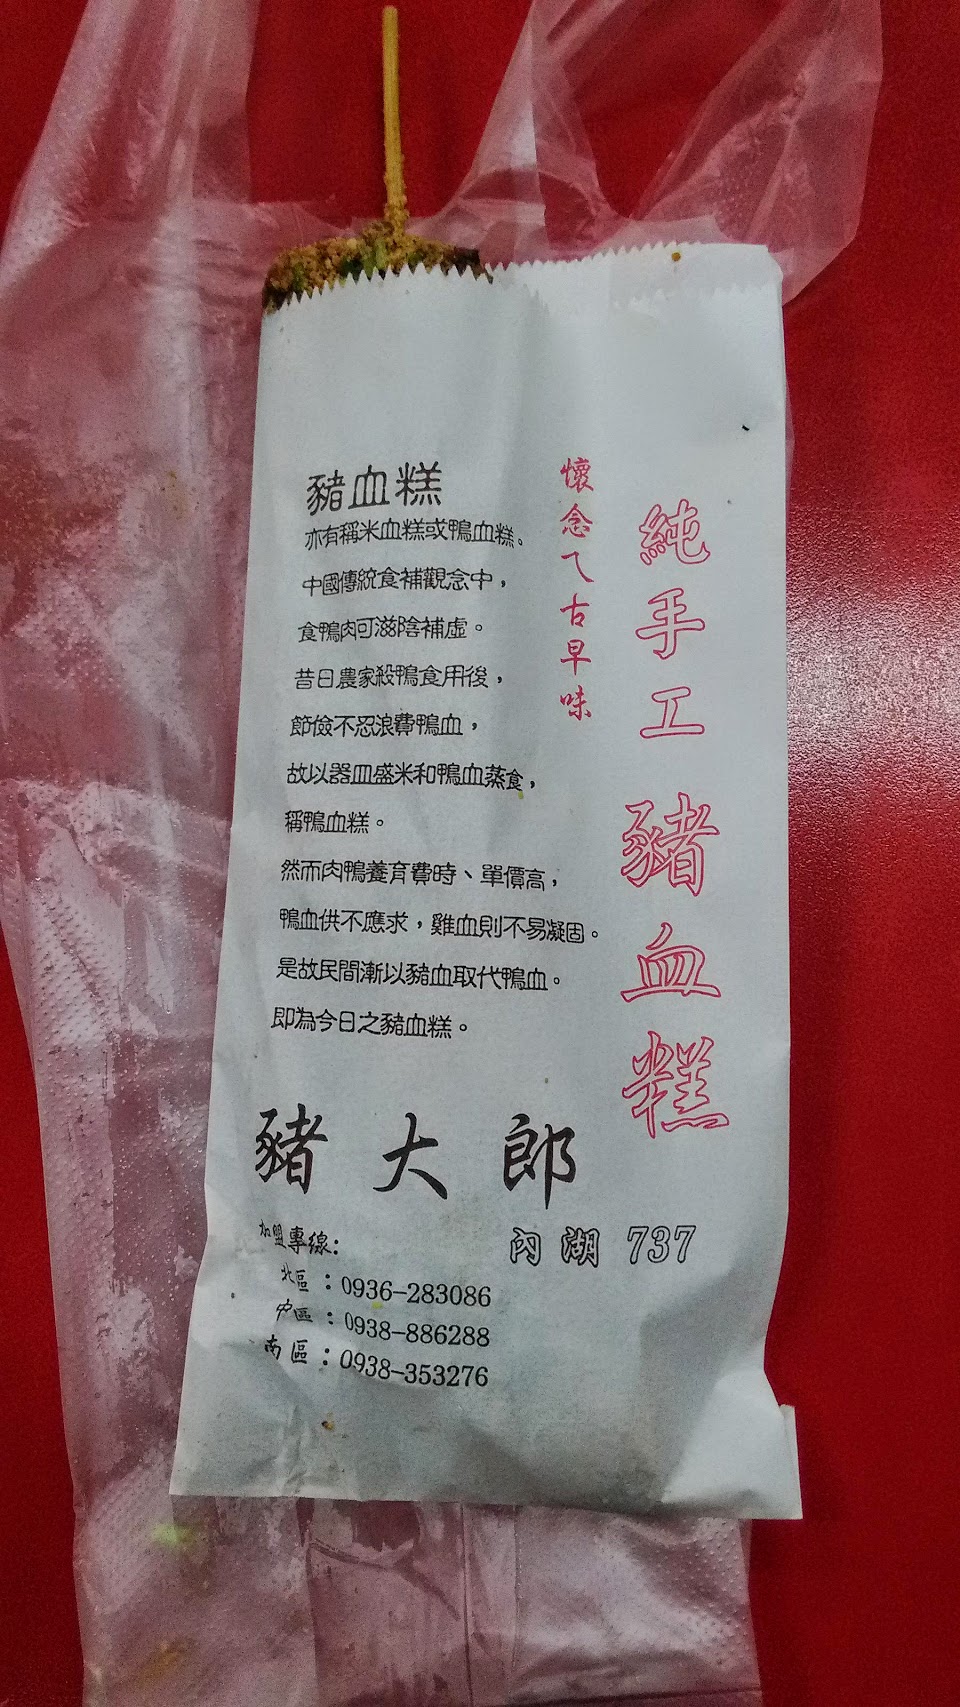 純手工豬血糕
懷念ㄟ古早味
豬血糕
亦有稱米血糕或鴨血糕。
中國傳統食補觀念中，
食鴨肉可滋陰補虛。
昔日農家殺鴨食用後，
節儉不忍浪費鴨血，
故以器皿盛米和鴨血蒸食，
稱鴨血糕。
然而肉鴨養育費時、單價高，
鴨血供不應求，雞血則不易凝固。
是故民間漸以豬血取代鴨血。
即為今日之豬血糕。
豬大郎
內湖 737
加盟專線：
北區：0936-283086
中區：0938-886288
南區：0938-353276